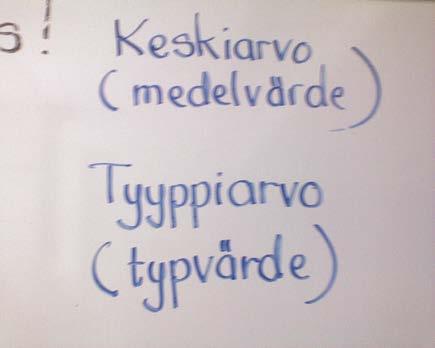 s! Keskiarvo
(medelvärde)
Tyyppiarvo
(typvärde)